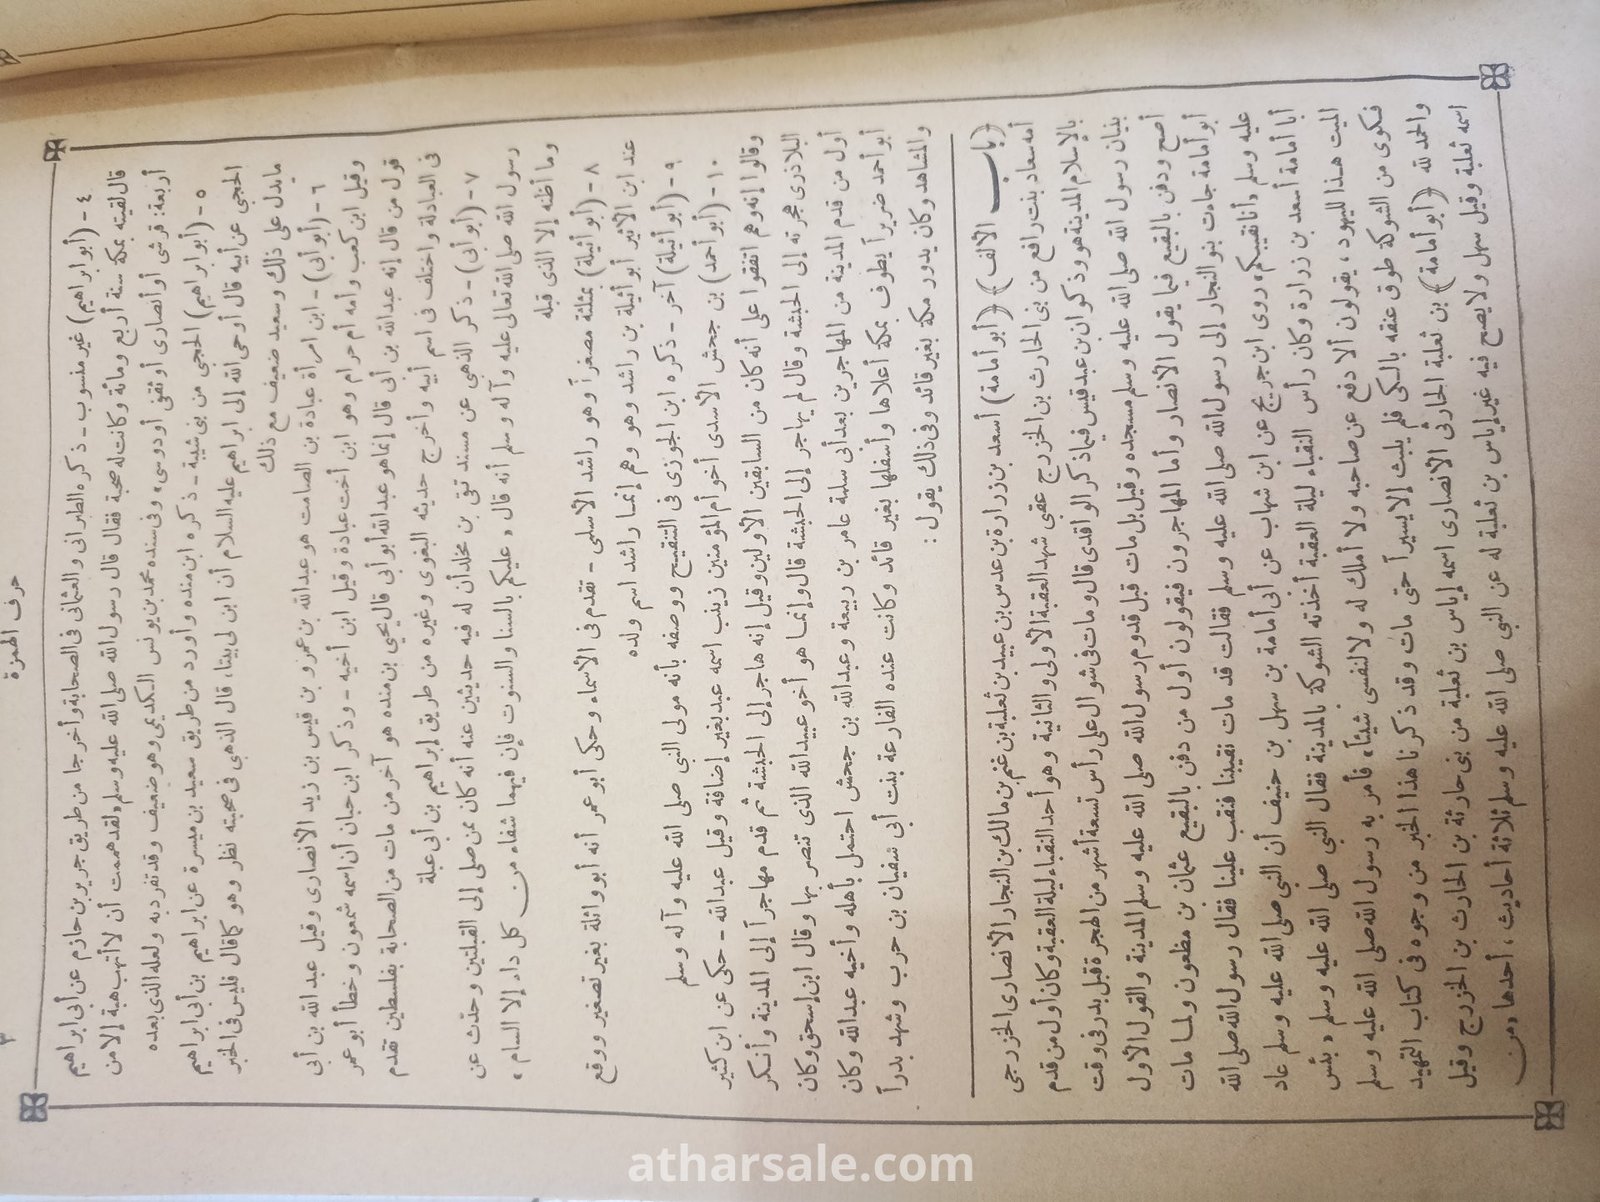 حرف الهمزة
٣
٤ - (أبو ابراهيم) غير منسوب - ذكره الطبرانى والعثمانى فى الصحابة وأخرجا من طريق جرير بن حازم عن أبى ابراهيم
قال لقيته بمكة سنة أربع ومائة وكانت له صحبة فقال قال رسول الله صلى الله عليه وسلم «لقد هممت أن لا أتهب هبة إلا من
أربعة: قرشى أو أنصارى أو ثقفى أو دوسى» وفى سنده محمد بن يونس الكديمى وهو ضعيف وقد تفرد به ولعله الذى بعده
٥ - (أبو ابراهيم) الحجبى من بنى شيبة - ذكره ابن منده وأورد من طريق سعيد بن ميسرة عن ابراهيم بن أبى ابراهيم
الحجبى عن أبيه قال أوحى الله إلى ابراهيم عليه السلام أن ابن لى بيتا، قال الذهبى فى صحبته نظر وهو كما قال فليس فى الخبر
ما يدل على ذلك وسعيد ضعيف مع ذلك
٦ - (أبو أبى) - ابن امرأة عبادة بن الصامت هو عبد الله بن عمرو بن قيس بن زيد الأنصارى وقيل عبد الله بن أبى
وقيل ابن كعب وأمه أم حرام وهو ابن أخت عبادة وقيل ابن أخيه - وذكر ابن حبان أن اسمه شمعون وخطأ أبو عمر
قول من قال إنه عبد الله بن أبى قال إنما هو عبد الله أبو أبى قال يحيى بن منده هو آخر من مات من الصحابة بفلسطين تقدم
فى العبادلة واختلف فى اسم أبيه وأخرج حديثه البغوى وغيره من طريق إبراهيم بن أبى عبلة
٧ - (أبو أبى) - ذكر الذهبى عن مسند تقى بن مخلد أن له فيه حديثين عنه أنه كان ممن صلى إلى القبلتين وحدث عن
رسول الله صلى الله تعالى عليه وآله وسلم أنه قال «عليكم بالسنا والسنوت فإن فيهما شفاء من كل داء إلا السام»
وما أظنه إلا الذى قبله
٨ - (أبو أثيلة) بمثلثة مصغراً وهو راشد الأسلمى - تقدم فى الأسماء وحكى أبو عمر أنه أبو واثلة بغير تصغير ووقع
عند ابن الأثير أبو أثيلة بن راشد وهو وهم إنما راشد اسم ولده
٩ - (أبو أثيلة) آخر - ذكره ابن الجوزى فى التنقيح ووصفه بأنه مولى النبى صلى الله عليه وآله وسلم
١٠ - (أبو أحمد) بن جحش الأسدى أخو أم المؤمنين زينب اسمه عبد بغير إضافة وقيل عبد الله - حكى عن ابن كثير
وقالوا إنه وهم اتفقوا على أنه كان من السابقين الأولين وقيل إنه هاجر إلى الحبشة ثم قدم مهاجراً إلى المدينة وأنكر
البلاذرى هجرته إلى الحبشة وقال لم يهاجر إلى الحبشة قال وإنما هو أخو عبيد الله الذى تنصر بها وقال ابن إسحق وكان
أول من قدم المدينة من المهاجرين بعد أبى سلمة عامر بن ربيعة وعبد الله بن جحش احتمل بأهله وأخيه عبد الله وكان
أبو أحمد ضريراً يطوف بمكة أعلاها وأسفلها بغير قائد وكانت عنده الفارعة بنت أبى سفيان بن حرب وشهد بدراً
والمشاهد وكان يدور مكة بغير قائد وفى ذلك يقول:
﴿باب الألف﴾ ﴿أبو أمامة﴾ أسعد بن زرارة بن عدس بن عبيد بن ثعلبة بن غنم بن مالك بن النجار الأنصارى الخزرجى
أمه سعاد بنت رافع من بنى الحارث بن الخزرج عقبى شهد العقبة الأولى والثانية وهو أحد النقباء ليلة العقبة وكان أول من قدم
بالإسلام المدينة هو وذكوان بن عبد قيس فيما ذكر الواقدى قال ومات فى شوال على رأس تسعة أشهر من الهجرة قبل بدر فى وقت
بنيان رسول الله صلى الله عليه وسلم مسجده وقيل بل مات قبل قدوم رسول الله صلى الله عليه وسلم المدينة والقول الأول
أصح ودفن بالبقيع فيما يقول الأنصار وأما المهاجرون فيقولون أول من دفن بالبقيع عثمان بن مظعون ولما مات
أبو أمامة جاءت بنو النجار إلى رسول الله صلى الله عليه وسلم فقالت قد مات نقيبنا فنقب علينا فقال رسول الله صلى الله
عليه وسلم «أنا نقيبكم» روى ابن جريج عن ابن شهاب عن أبى أمامة بن سهل بن حنيف أن النبى صلى الله عليه وسلم عاد
أبا أمامة أسعد بن زرارة وكان رأس النقباء ليلة العقبة أخذته الشوكة بالمدينة فقال النبى صلى الله عليه وسلم «بئس
الميت هذا لليهود، يقولون ألا دفع عن صاحبه ولا أملك له ولا لنفسى شيئاً» فأمر به رسول الله صلى الله عليه وسلم
فكوى من الشوكة طوق عنقه بالكى فلم يلبث إلا يسيراً حتى مات وقد ذكرنا هذا الخبر من وجوه فى كتاب التمهيد
والحمد لله ﴿أبو أمامة﴾ بن ثعلبة الحارثى الأنصارى اسمه إياس بن ثعلبة من بنى حارثة بن الحارث بن الخزرج وقيل
اسمه ثعلبة وقيل سهل ولا يصح فيه غير إياس بن ثعلبة له عن النبى صلى الله عليه وسلم ثلاثة أحاديث، أحدها «من
atharsale.com